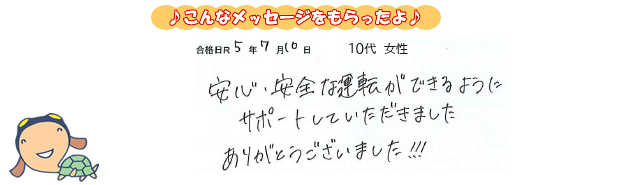 ♪こんなメッセージをもらったよ♪
合格日R 5 年 7 月 10 日 10代 女性
安心・安全な運転ができるように
サポートしていただきました
ありがとうございました!!!